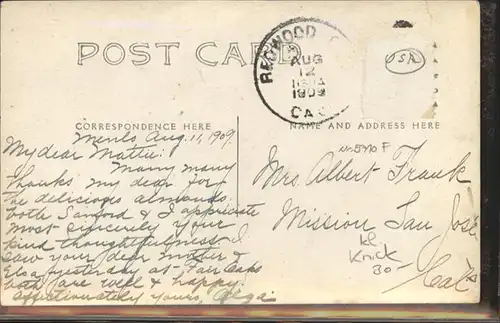 POST CARD
REDWOOD
AUG
12
1909
CAL
USA
CORRESPONDENCE HERE
NAME AND ADDRESS HERE
Menlo Aug. 11, 1909.
My dear Mattie:
Many many
thanks my dear for
the delicious almonds
both Sanford & I appreciate
most sincerely your
kind thoughtfulness. I
saw your dear mother &
Elsa yesterday at Fair Oaks
both are well & happy.
Affectionately yours, Olga
Mrs. Albert Frank
Mission San José
Cal
Knick
30-